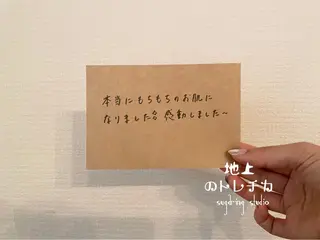 本当にもちもちのお肌に
なりました!! 感動しました〜
地上
のトレチカ